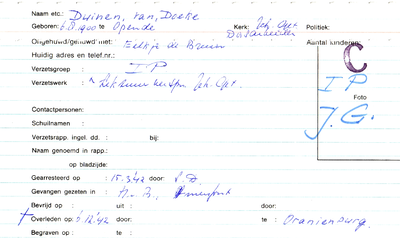 Naam etc.: Duinen, van, Doeke
Geboren: 6.8.1900 te Opende Kerk: Jeh. Get. Politiek:
Ongehuwd/gehuwd met: Eelkje de Bruin Aantal kinderen:
Huidig adres en telef.nr.:
Verzetsgroep : I P
Verzetswerk : Jeh. Get.
C
I P
Foto
J.G.
Contactpersonen:
Schuilnamen :
Verzetsrapp. ingel. dd. : bij:
Naam genoemd in rapp.:
op bladzijde:
Gearresteerd op : 15.3.'42 door: S.D.
Gevangen gezeten in : Amersfoort
Bevrijd op : uit : door:
Overleden op: 6.12.'42 door: te : Oranienburg.
Begraven op : te :